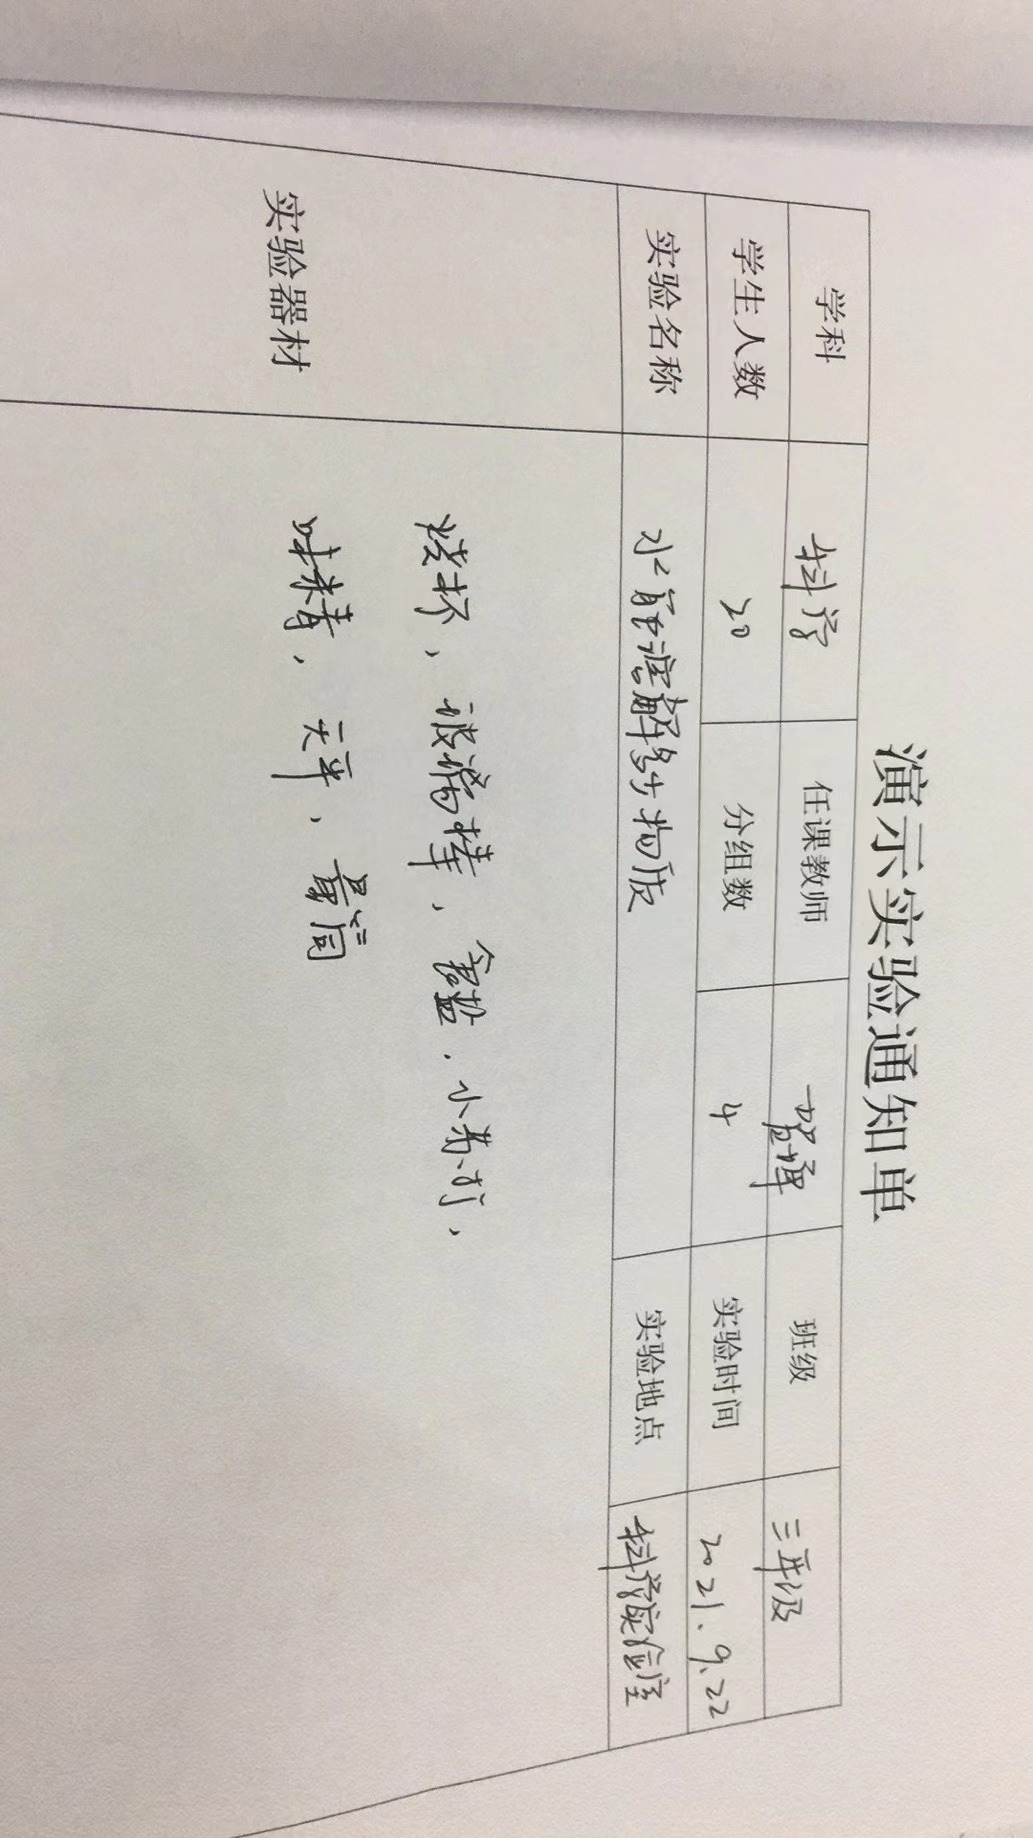 演示实验通知单
学科 科学 任课教师 班级 三年级
学生人数 20 分组数 4 实验时间 2021.9.22
实验名称 水能溶解多少物质 实验地点 科学实验室
实验器材
烧杯，玻璃棒，食盐，小苏打，
味精，天平，量筒